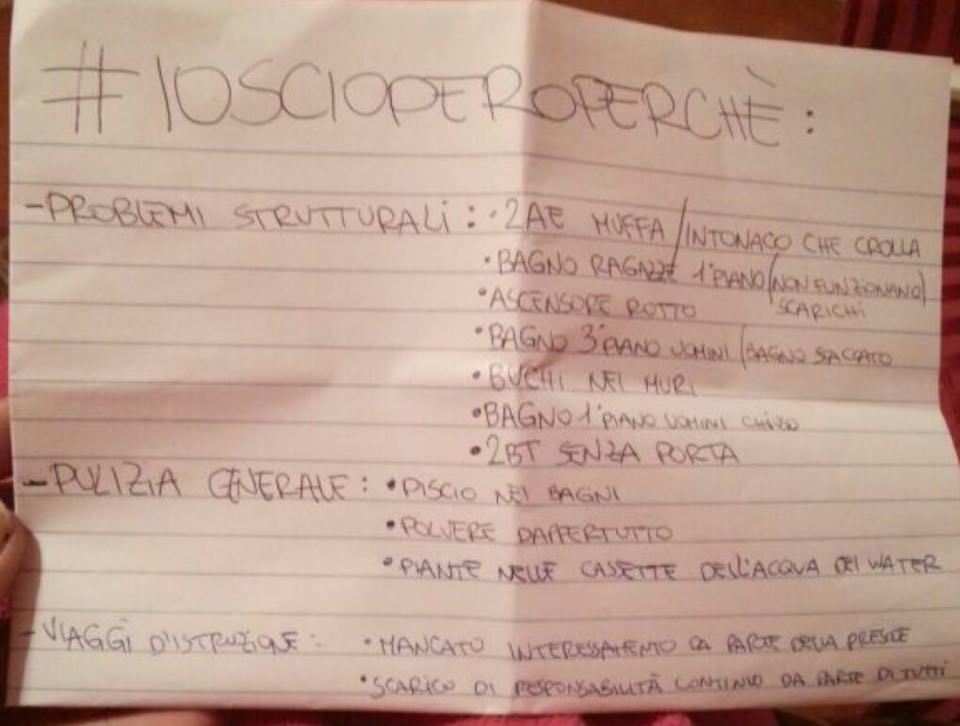 #IOSCIOPEROPERCHÈ:
-PROBLEMI STRUTTURALI: •2AE MUFFA/INTONACO CHE CROLLA
•BAGNO RAGAZZE 1°PIANO/NON FUNZIONANO/
SCARICHI
•ASCENSORE ROTTO
•BAGNO 3°PIANO UOMINI/BAGNO SPACCATO
•BUCHI NEI MURI
•BAGNO 1°PIANO UOMINI CHIUSO
•2BT SENZA PORTA
-PULIZIA GENERALE: •PISCIO NEI BAGNI
•POLVERE DAPPERTUTTO
•PIANTE NELLE CASETTE DELL'ACQUA DEI WATER
-VIAGGI D'ISTRUZIONE: •MANCATO INTERESSAMENTO DA PARTE DELLA PRESIDE
•SCARICO DI RESPONSABILITÀ CONTINUO DA PARTE DI TUTTI